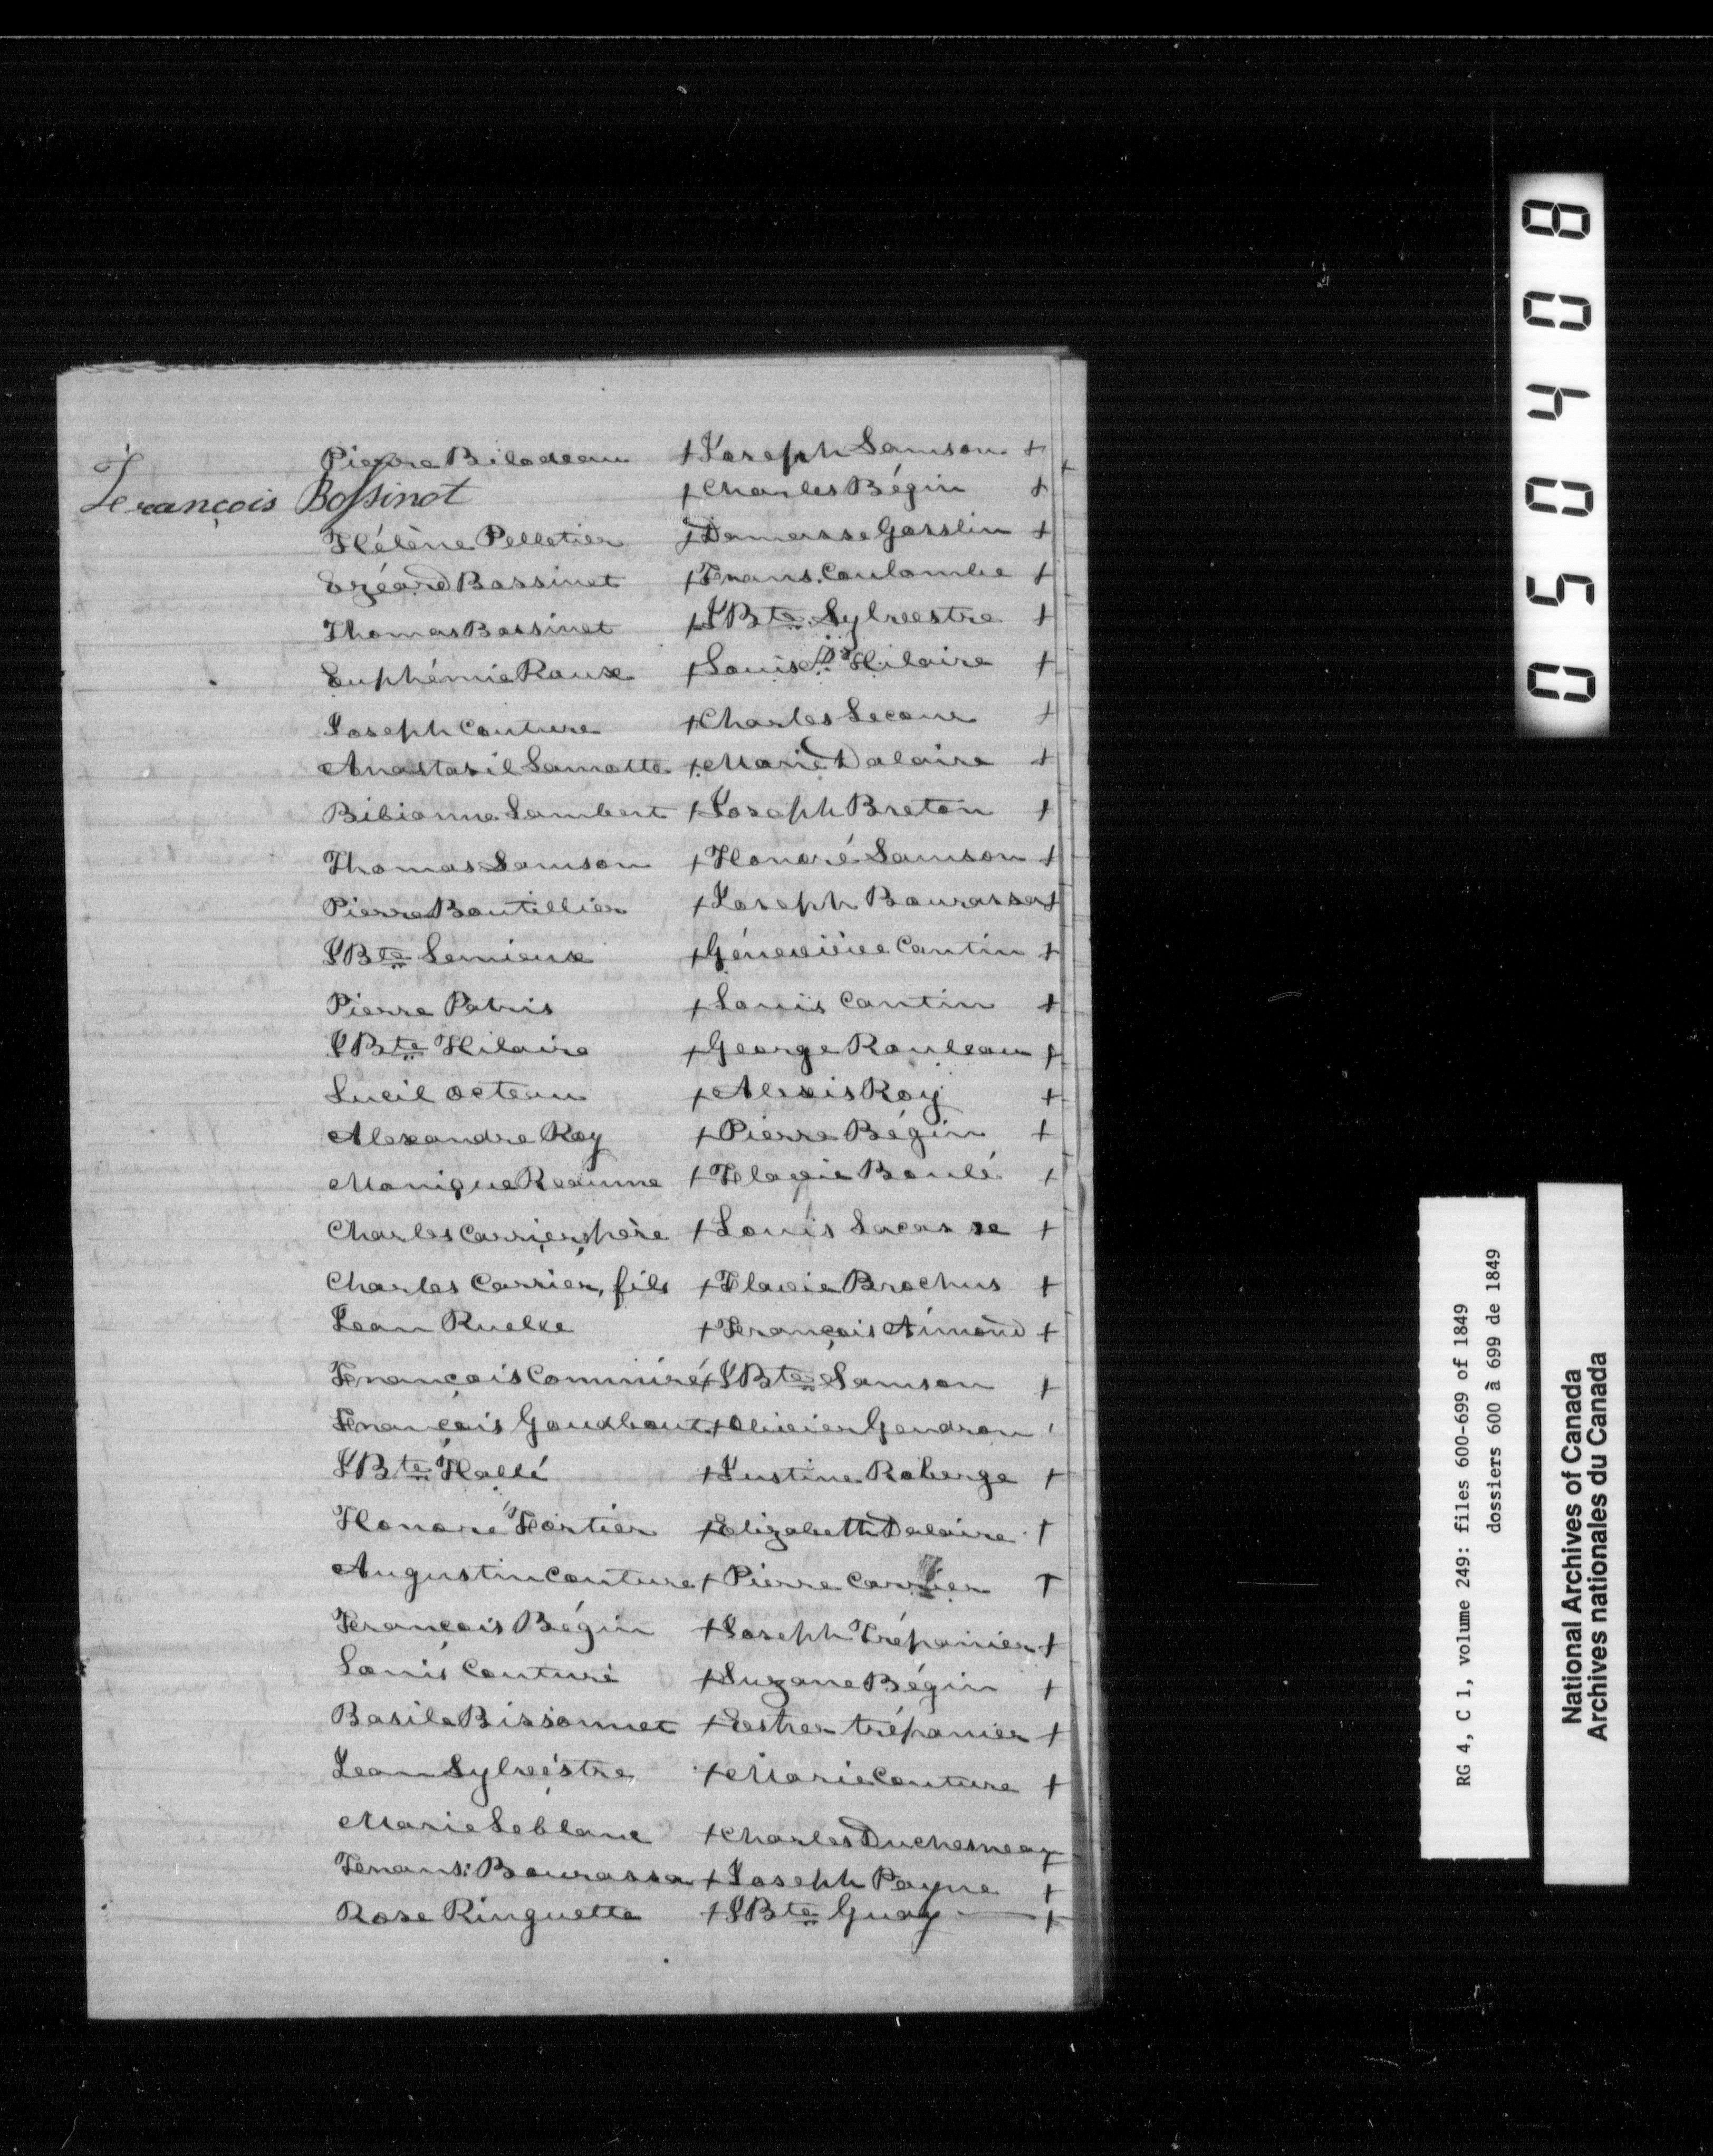 Pierre Bilodeau + Joseph Samson +
François Bossinot + Charles Bégin +
Hélène Pelletier + Damasse Gosslin +
Ezéard Bossinet + Frans. Coulombe +
Thomas Bossinet + JBte Sylvestre +
Euphémie Roux + Louise Hilaire +
Joseph Couture + Charles Lecour +
Anastasil Lamotte + Marie Dalaire +
Bibianne Lambert + Joseph Breton +
Thomas Samson + Honoré Samson +
Pierre Boutillier + Joseph Bourassa +
JBte Lemieux + Géneviève Cantin +
Pierre Patris + Louis Cantin +
JBte Hilaire + George Rouleau +
Lucil Octeau + Alexis Roy +
Alexandre Roy + Pierre Bégin +
Monique Reaume + Flavie Boulé +
Charles Carrier, père + Louis Lacasse +
Charles Carrier, fils + Flavie Brochus +
Jean Ruelxe + François Aimond +
François Comminré + JBte Samson +
François Goudbout + Olivier Gendron
JBte Hallé + Justine Roberge +
Honoré Fortier + Elizabeth Dalaire +
Augustin Couture + Pierre Carrier +
François Bégin + Joseph Trépanier +
Louis Couture + Suzane Bégin +
Basile Bissonnet + Ester trépanier +
Jean Sylvestre + Marie Couture +
Marie Leblanc + Charles Duchesneay
Frans: Bourassa + Joseph Payne +
Rose Ringuette + JBte Guay +
050408
RG 4, C 1, volume 249: files 600-699 of 1849
dossiers 600 à 699 de 1849
National Archives of Canada
Archives nationales du Canada